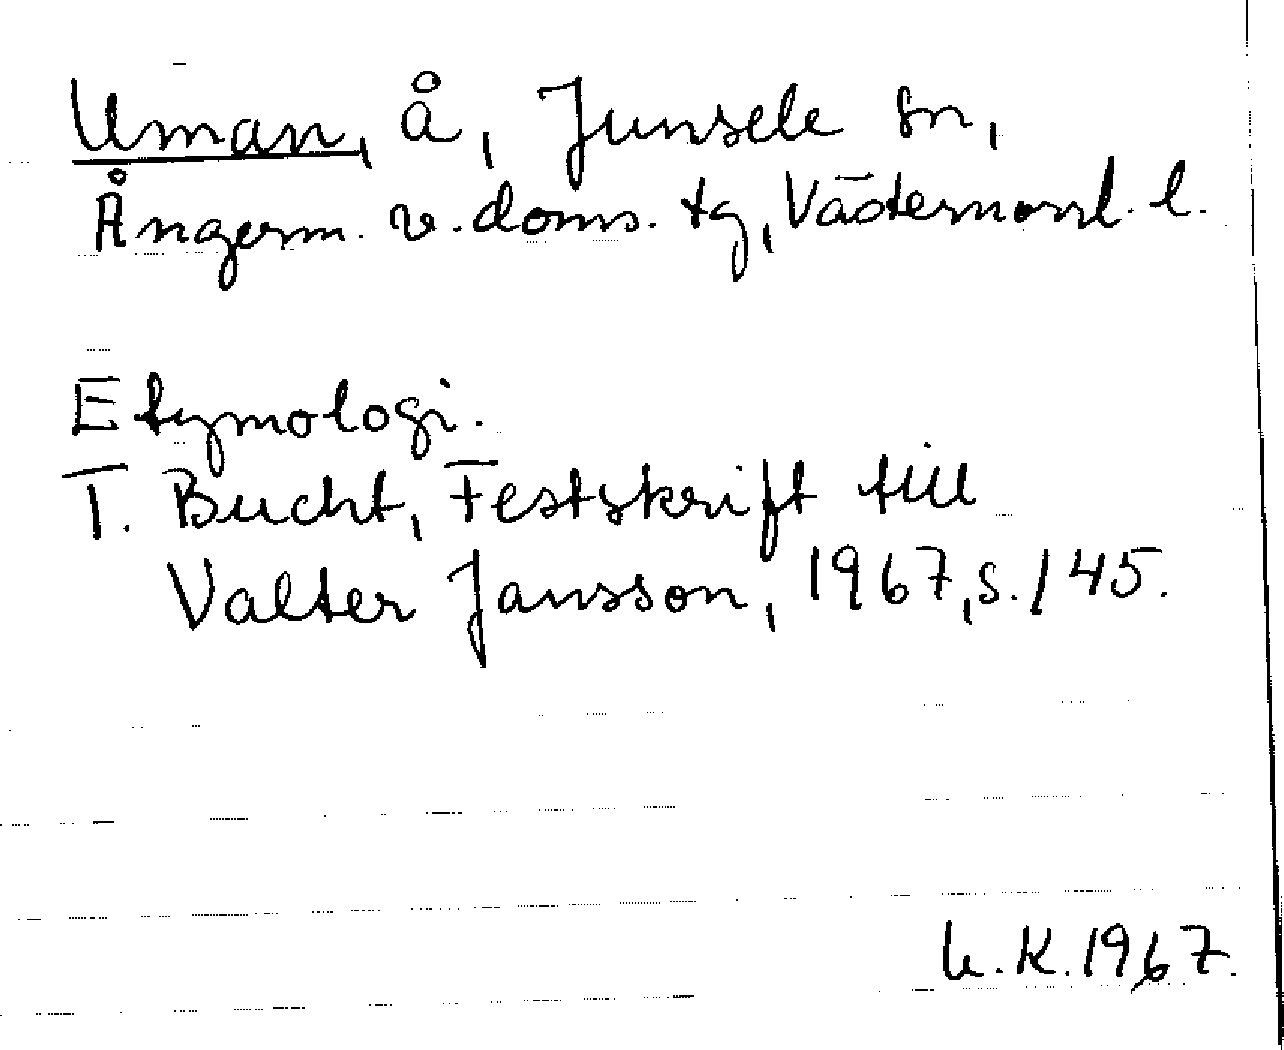 Uman, å, Junsele sn,
Ångerm. v. doms. tg, Västernorrl. l.
Etymologi.
T. Bucht, Festskrift till
Valter Jansson, 1967, s. 145.
U.K. 1967.